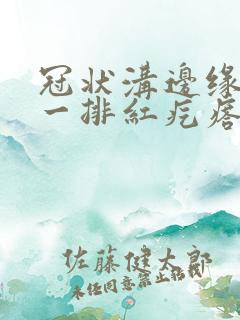 冠状溝邊缘
一排紅疙瘩
佐藤健太郎
未任同意禁止转载